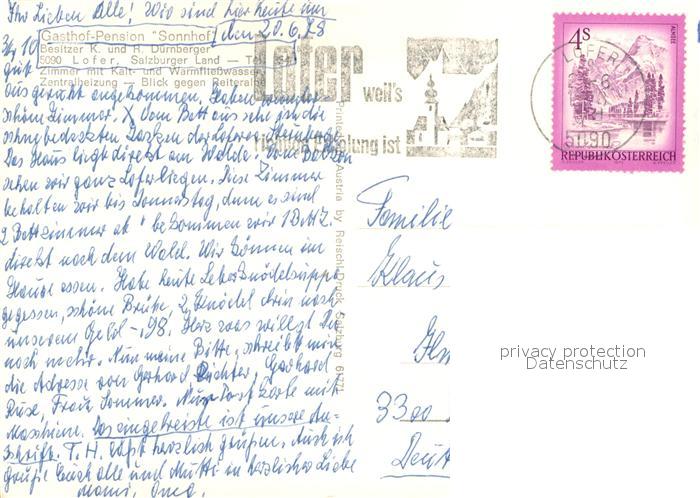 Ihr Lieben Alle! Wir sind hier heute um
3/4 10
den 20.6.78
Gasthof-Pension "Sonnhof"
Besitzer K. und H. Dürnberger
5090 Lofer, Salzburger Land — Tel.
Zimmer mit Kalt- und Warmfließwasser
Zentralheizung — Blick gegen Reiteralpe
gut
angekommen. Haben wunder-
schöne Zimmer. Vom Bett aus sehe ich die
schneebedeckten der Loferer
Das Haus liegt direkt am Walde. Vom Balkon
sehen wir ganz Lofer liegen. Diese Zimmer
behalten wir bis Donnerstag, dann es sind
2 Bettzimmer ab bekommen wir 1 Bett Z.
direkt nach dem Wald. Wir können im
Hause essen. Habe heute Leberknödelsuppe
gegessen, schöne Brühe, 2 Knödel drin nach
unserem Geld -,98. Herz was willst Du
noch mehr. Nun meine Bitte, schreibt mir
die Adresse von Gerhard Richter, Gerhard
Frau Sommer. Nur Postkarte mit
Maschine. Das eingekreiste ist unsere An-
schrift. T. H. läßt herzlich grüßen. Auch ich
grüße Euch alle und Mutti in herzlicher Liebe
Mami, Oma.
Printed in Austria by Reisch-Druck Salzburg
Lofer
weil's
Erholung ist
LOFER
5090
4S
ALMSEE
REPUBLIK ÖSTERREICH
Familie
Klaus
3300
Deut
privacy protection
Datenschutz